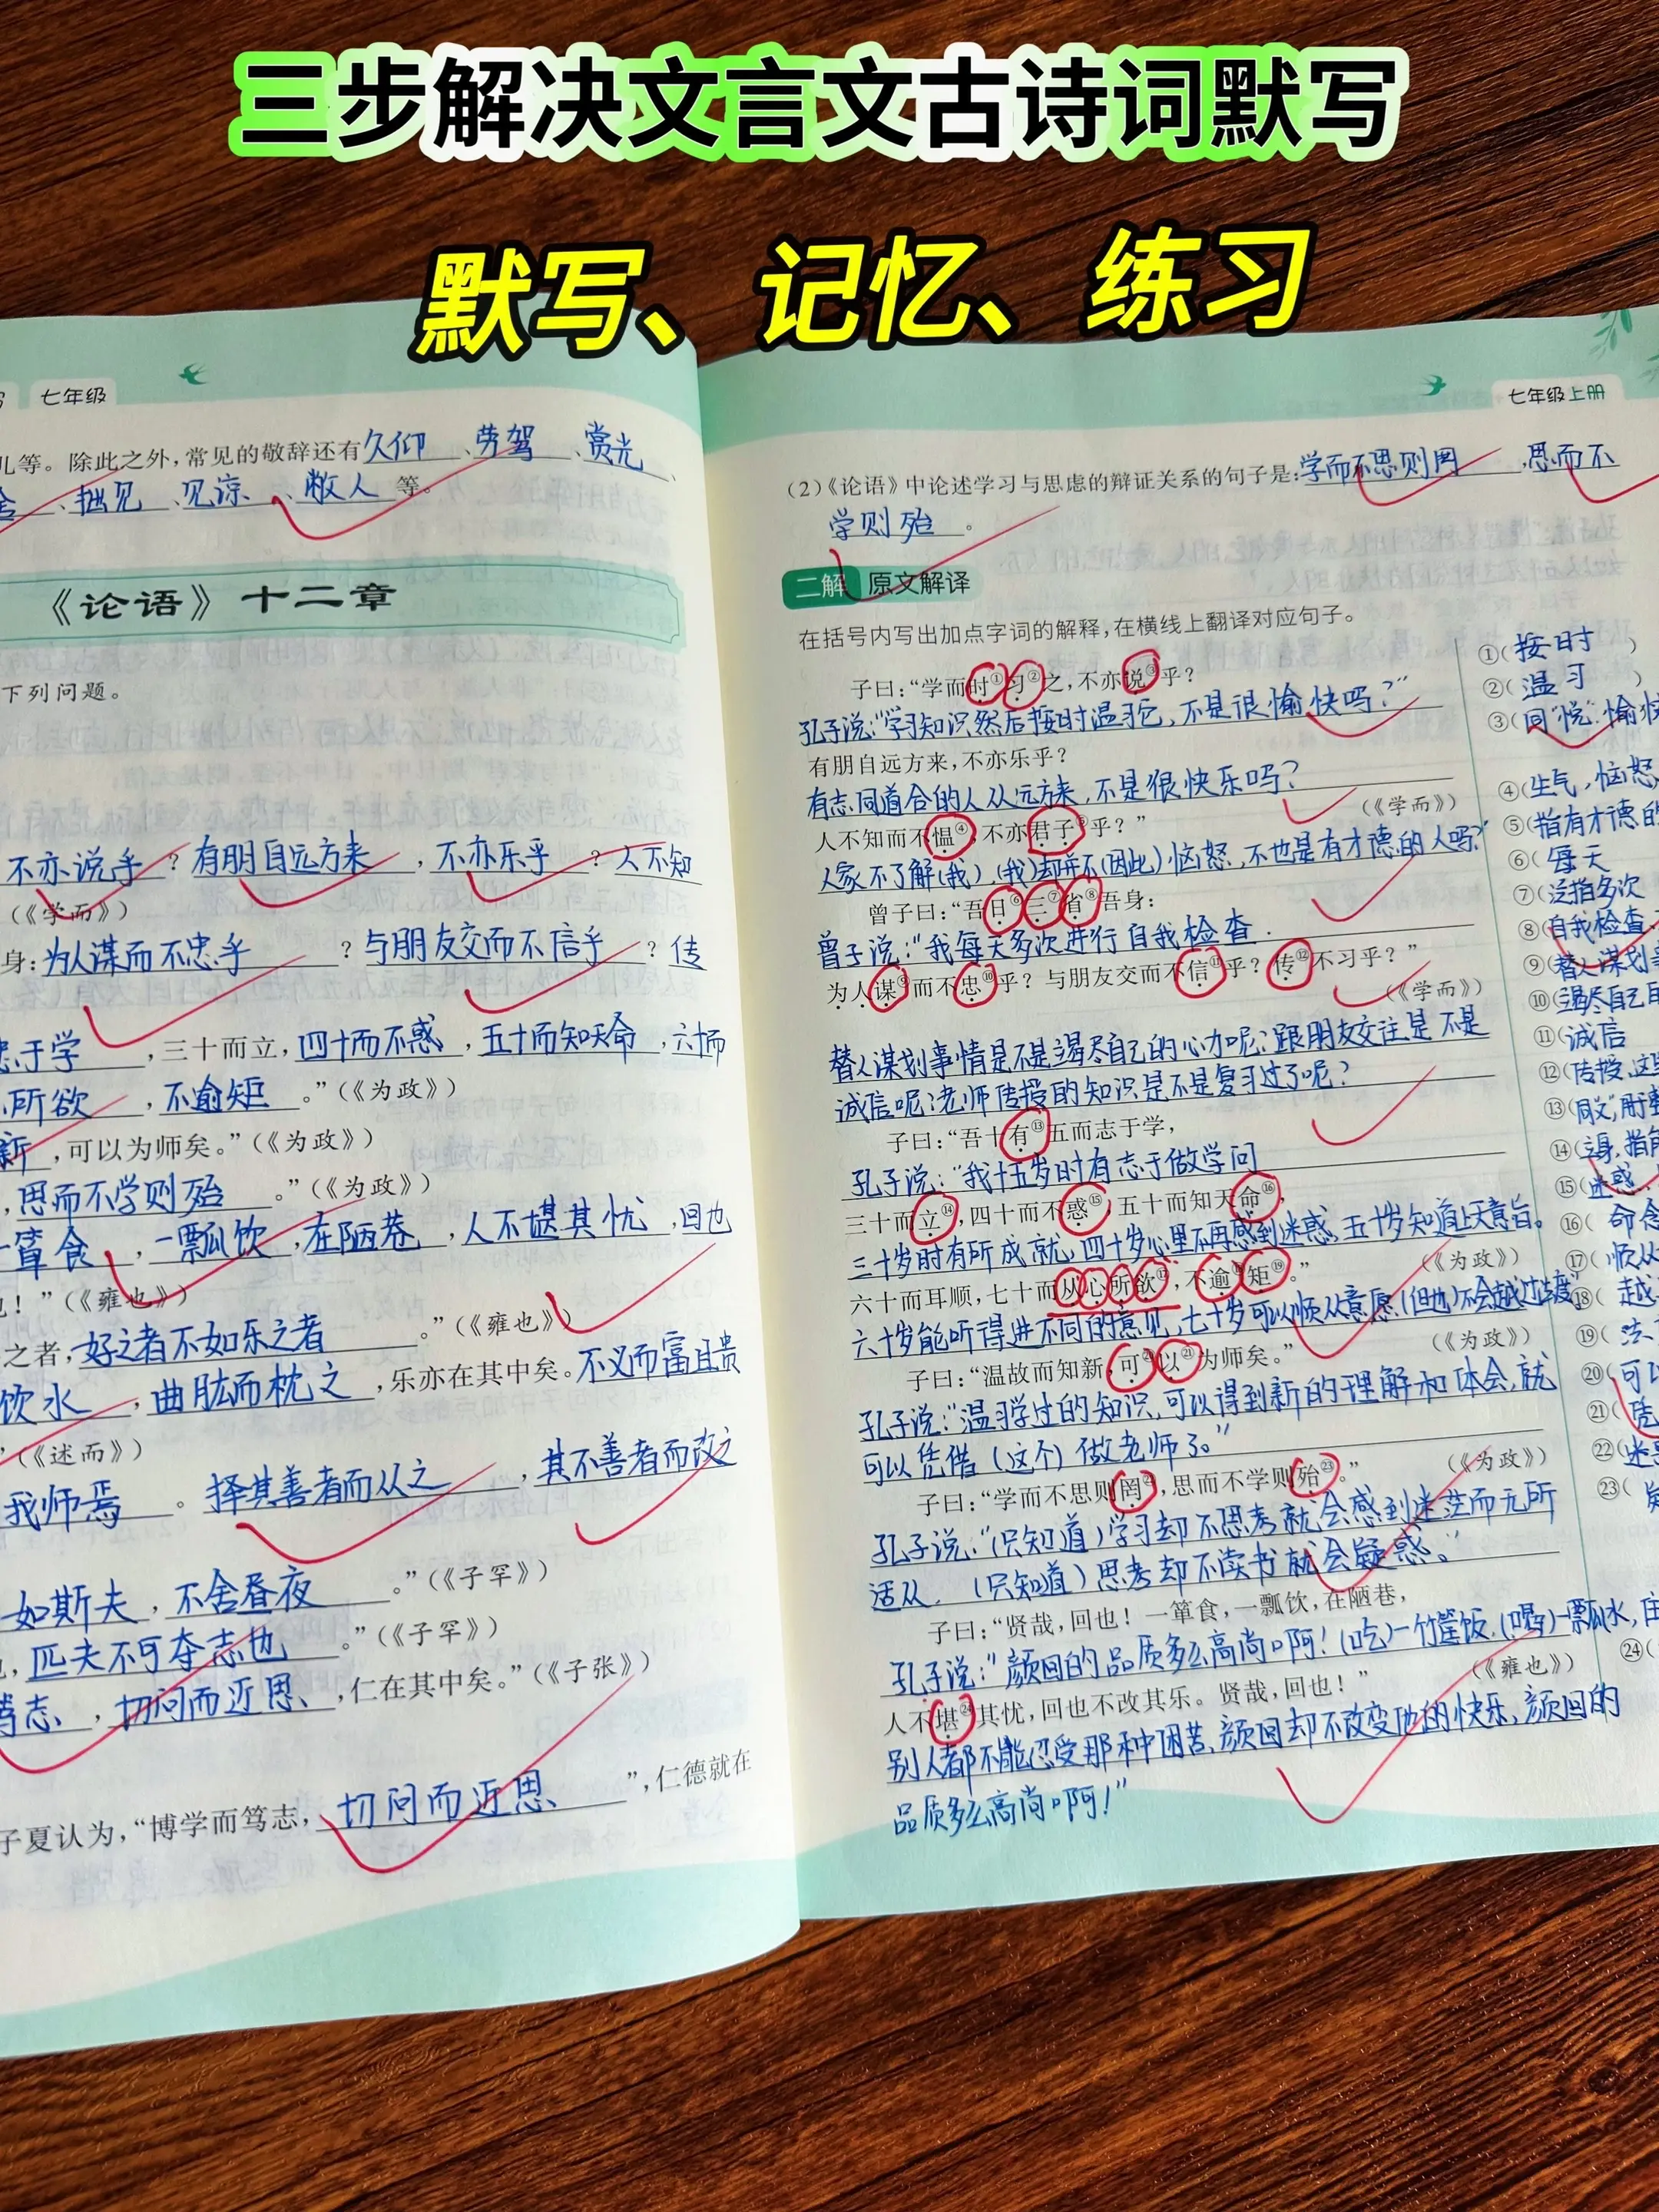 三步解决文言文古诗词默写
默写、记忆、练习
七年级
儿等。除此之外,常见的敬辞还有久仰、劳驾、赏光、
舍、拙见、见谅、敝人等。
《论语》十二章
下列问题。
不亦说乎?有朋自远方来,不亦乐乎?人不知
(《学而》)
身:为人谋而不忠乎?与朋友交而不信乎?传
志于学,三十而立,四十而不惑,五十而知天命,六十而
所欲,不逾矩。”(《为政》)
新,可以为师矣。”(《为政》)
,思而不学则殆。”(《为政》)
一箪食,一瓢饮,在陋巷,人不堪其忧,回也
也!”(《雍也》)
之者,好之者不如乐之者。”(《雍也》)
饮水,曲肱而枕之,乐亦在其中矣。不义而富且贵
”(《述而》)
我师焉。择其善者而从之,其不善者而改之
如斯夫,不舍昼夜。”(《子罕》)
,匹夫不可夺志也。”(《子罕》)
笃志,切问而近思、,仁在其中矣。”(《子张》)
子夏认为,“博学而笃志,切问而近思”,仁德就在
七年级上册
(2)《论语》中论述学习与思虑的辩证关系的句子是:学而不思则罔,思而不
学则殆。
二解 原文解译
在括号内写出加点字词的解释,在横线上翻译对应句子。
子曰:“学而时①习②之,不亦说③乎?
孔子说:“学习知识然后按时温习它,不是很愉快吗?”
有朋自远方来,不亦乐乎?
有志同道合的人从远方来,不是很快乐吗?
(《学而》)
人不知而不愠④,不亦君子⑤乎?”
人家不了解(我),(我)却并不(因此)恼怒,不也是有才德的人吗?”
曾子曰:“吾日⑥三⑦省⑧吾身:
曾子说:“我每天多次进行自我检查.
为人谋⑨而不忠⑩乎?与朋友交而不信⑪乎?传⑫不习乎?”
(《学而》)
替人谋划事情是不是竭尽自己的心力呢?跟朋友交往是不是
诚信呢?老师传授的知识是不是复习过了呢?
子曰:“吾十有⑬五而志于学,
孔子说:“我十五岁时有志于做学问
三十而立⑭,四十而不惑⑮,五十而知天命⑯,
三十岁时有所成就,四十岁心里不再感到迷惑,五十岁知道上天意旨。
(《为政》)
六十而耳顺,七十而从心所欲⑰,不逾⑱矩⑲。”
六十岁能听得进不同的意见,七十岁可以顺从意愿(但也)不会越过法度”
(《为政》)
子曰:“温故而知新,可⑳以㉑为师矣。”
孔子说:“温习学过的知识,可以得到新的理解和体会,就
可以凭借(这个)做老师了。”
(《为政》)
子曰:“学而不思则罔㉒,思而不学则殆㉓。”
孔子说:“(只知道)学习却不思考就会感到迷茫而无所
适从,(只知道)思考却不读书就会疑惑。”
子曰:“贤哉,回也!一箪食,一瓢饮,在陋巷,
孔子说:“颜回的品质多么高尚啊!(吃)一竹筐饭,(喝)一瓢水,住
(《雍也》)
人不堪㉔其忧,回也不改其乐。贤哉,回也!”
别人都不能忍受那种困苦,颜回却不改变他的快乐,颜回的
品质多么高尚啊!”
①(按时)
②(温习)
③(同“悦”,愉快
④(生气,恼怒
⑤(指有才德的
⑥(每天
⑦(泛指多次
⑧(自我检查、
⑨(替人谋划
⑩(竭尽自己
⑪(诚信
⑫(传授,这里
⑬(同“又”,用于
⑭(立身,指
⑮(迷惑
⑯(命
⑰(顺从
⑱(越
⑲(法
⑳(可以
㉑(凭
㉒(迷
㉓(疑
㉔(